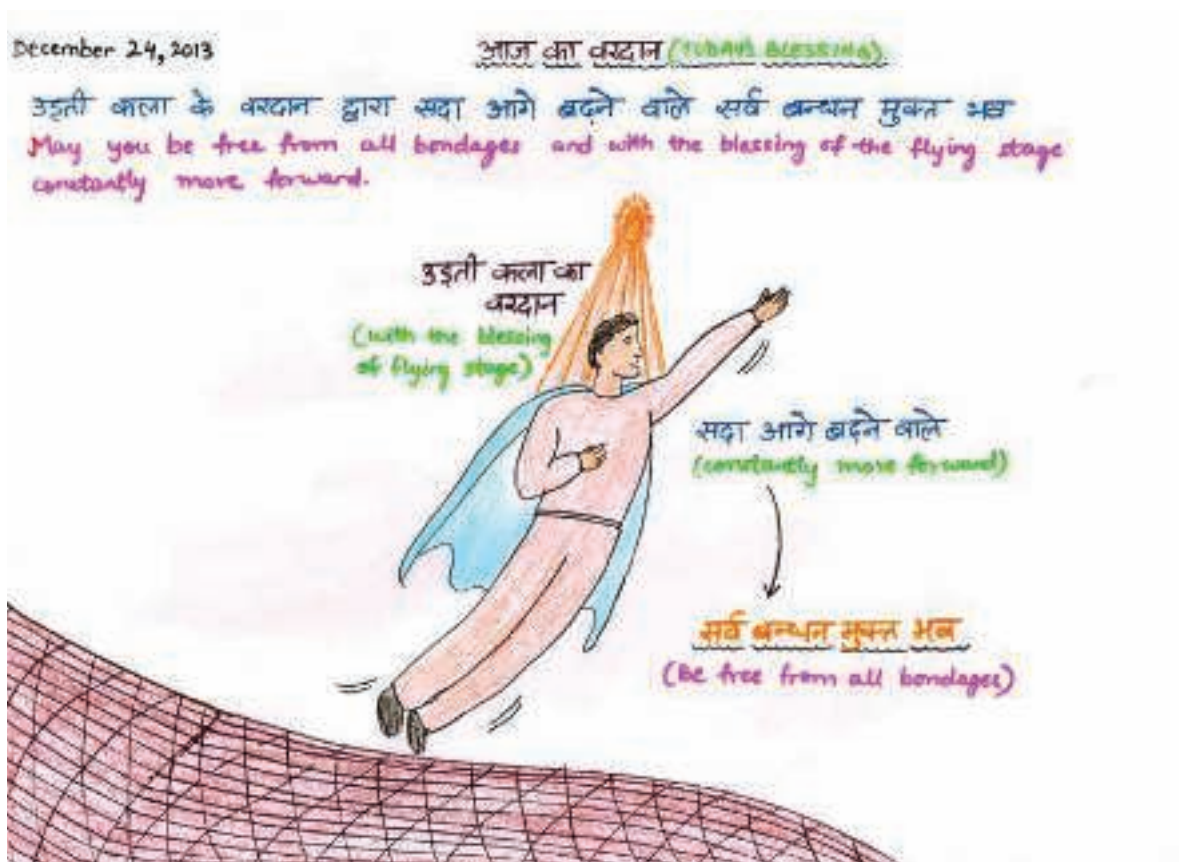 December 24, 2013
आज का वरदान (TODAY'S BLESSING)
उड़ती कला के वरदान द्वारा सदा आगे बढ़ने वाले सर्व बन्धन मुक्त भव
May you be free from all bondages and with the blessing of the flying stage
constantly move forward.
उड़ती कला का
वरदान
(with the blessing
of flying stage)
सदा आगे बढ़ने वाले
(constantly move forward)
सर्व बन्धन मुक्त भव
(Be free from all bondages)